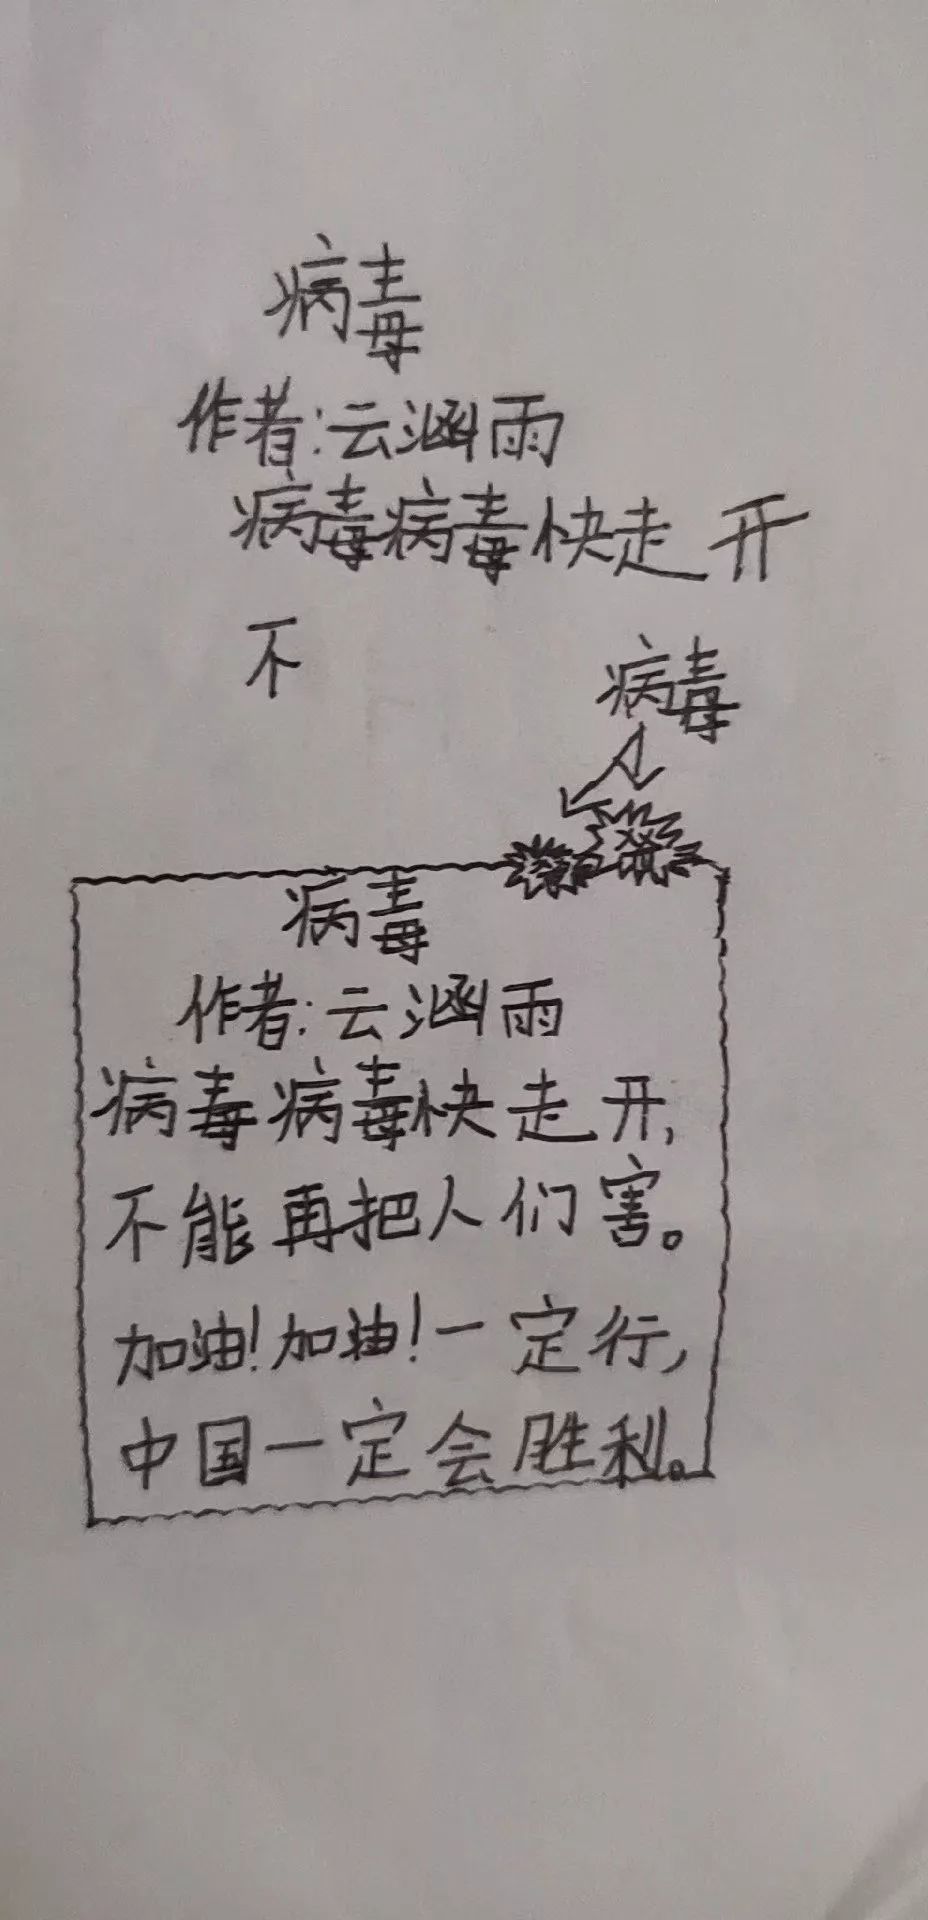 病毒
作者:云涵雨
病毒病毒快走开
不
病毒
病毒
作者:云涵雨
病毒病毒快走开,
不能再把人们害。
加油!加油!一定行,
中国一定会胜利。